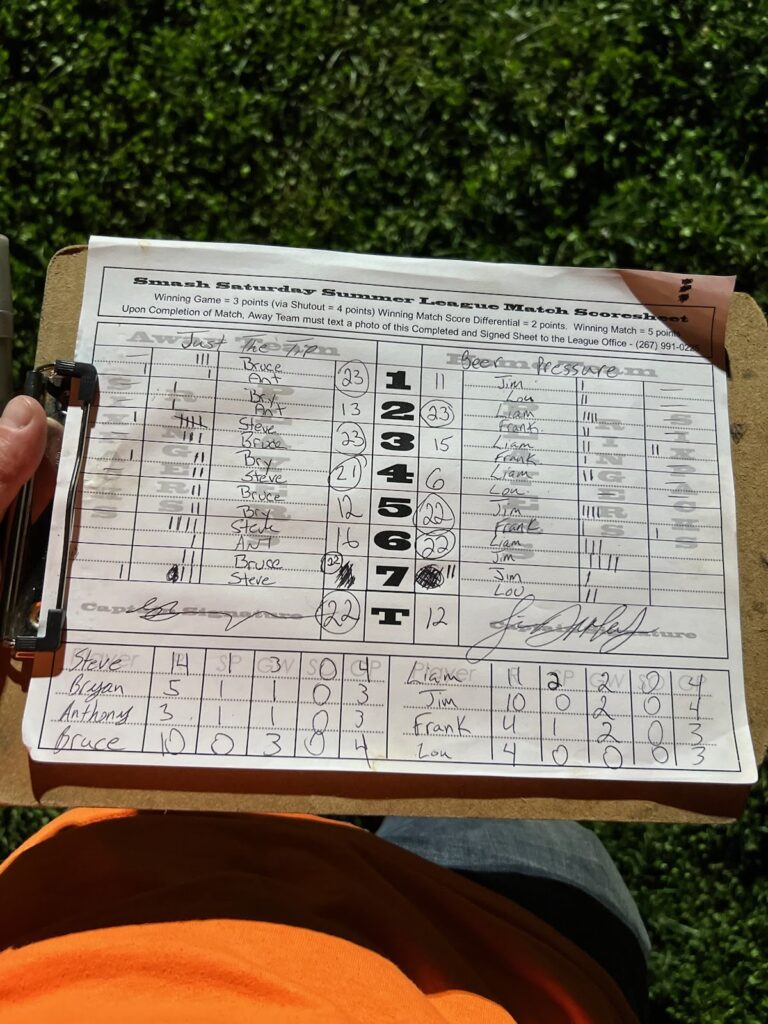 Smash Saturday Summer League Match Scoresheet
Winning Game = 3 points (via Shutout = 4 points) Winning Match Score Differential = 2 points. Winning Match = 5 points
Upon Completion of Match, Away Team must text a photo of this Completed and Signed Sheet to the League Office - (267) 991-0225
Away Team Home Team
Just The Tip Beer Pressure
Bruce 23 1 11 Jim
Ant Lou
Bry 13 2 23 Liam
Ant Frank
Steve 23 3 15 Liam
Bruce Frank
Bry 21 4 6 Liam
Steve Lou
Bruce 12 5 22 Jim
Bry Frank
Steve 16 6 22 Liam
Ant Jim
Bruce 22 7 11 Jim
Steve Lou
Captain Signature 22 T 12 Captain Signature
Player SP GW SO GP Player H SP GW SO GP
Steve 14 1 3 0 4 Liam 11 2 2 0 4
Bryan 5 1 1 0 3 Jim 10 0 2 0 4
Anthony 3 1 1 0 3 Frank 4 1 2 0 3
Bruce 10 0 3 0 4 Lou 4 0 0 0 3